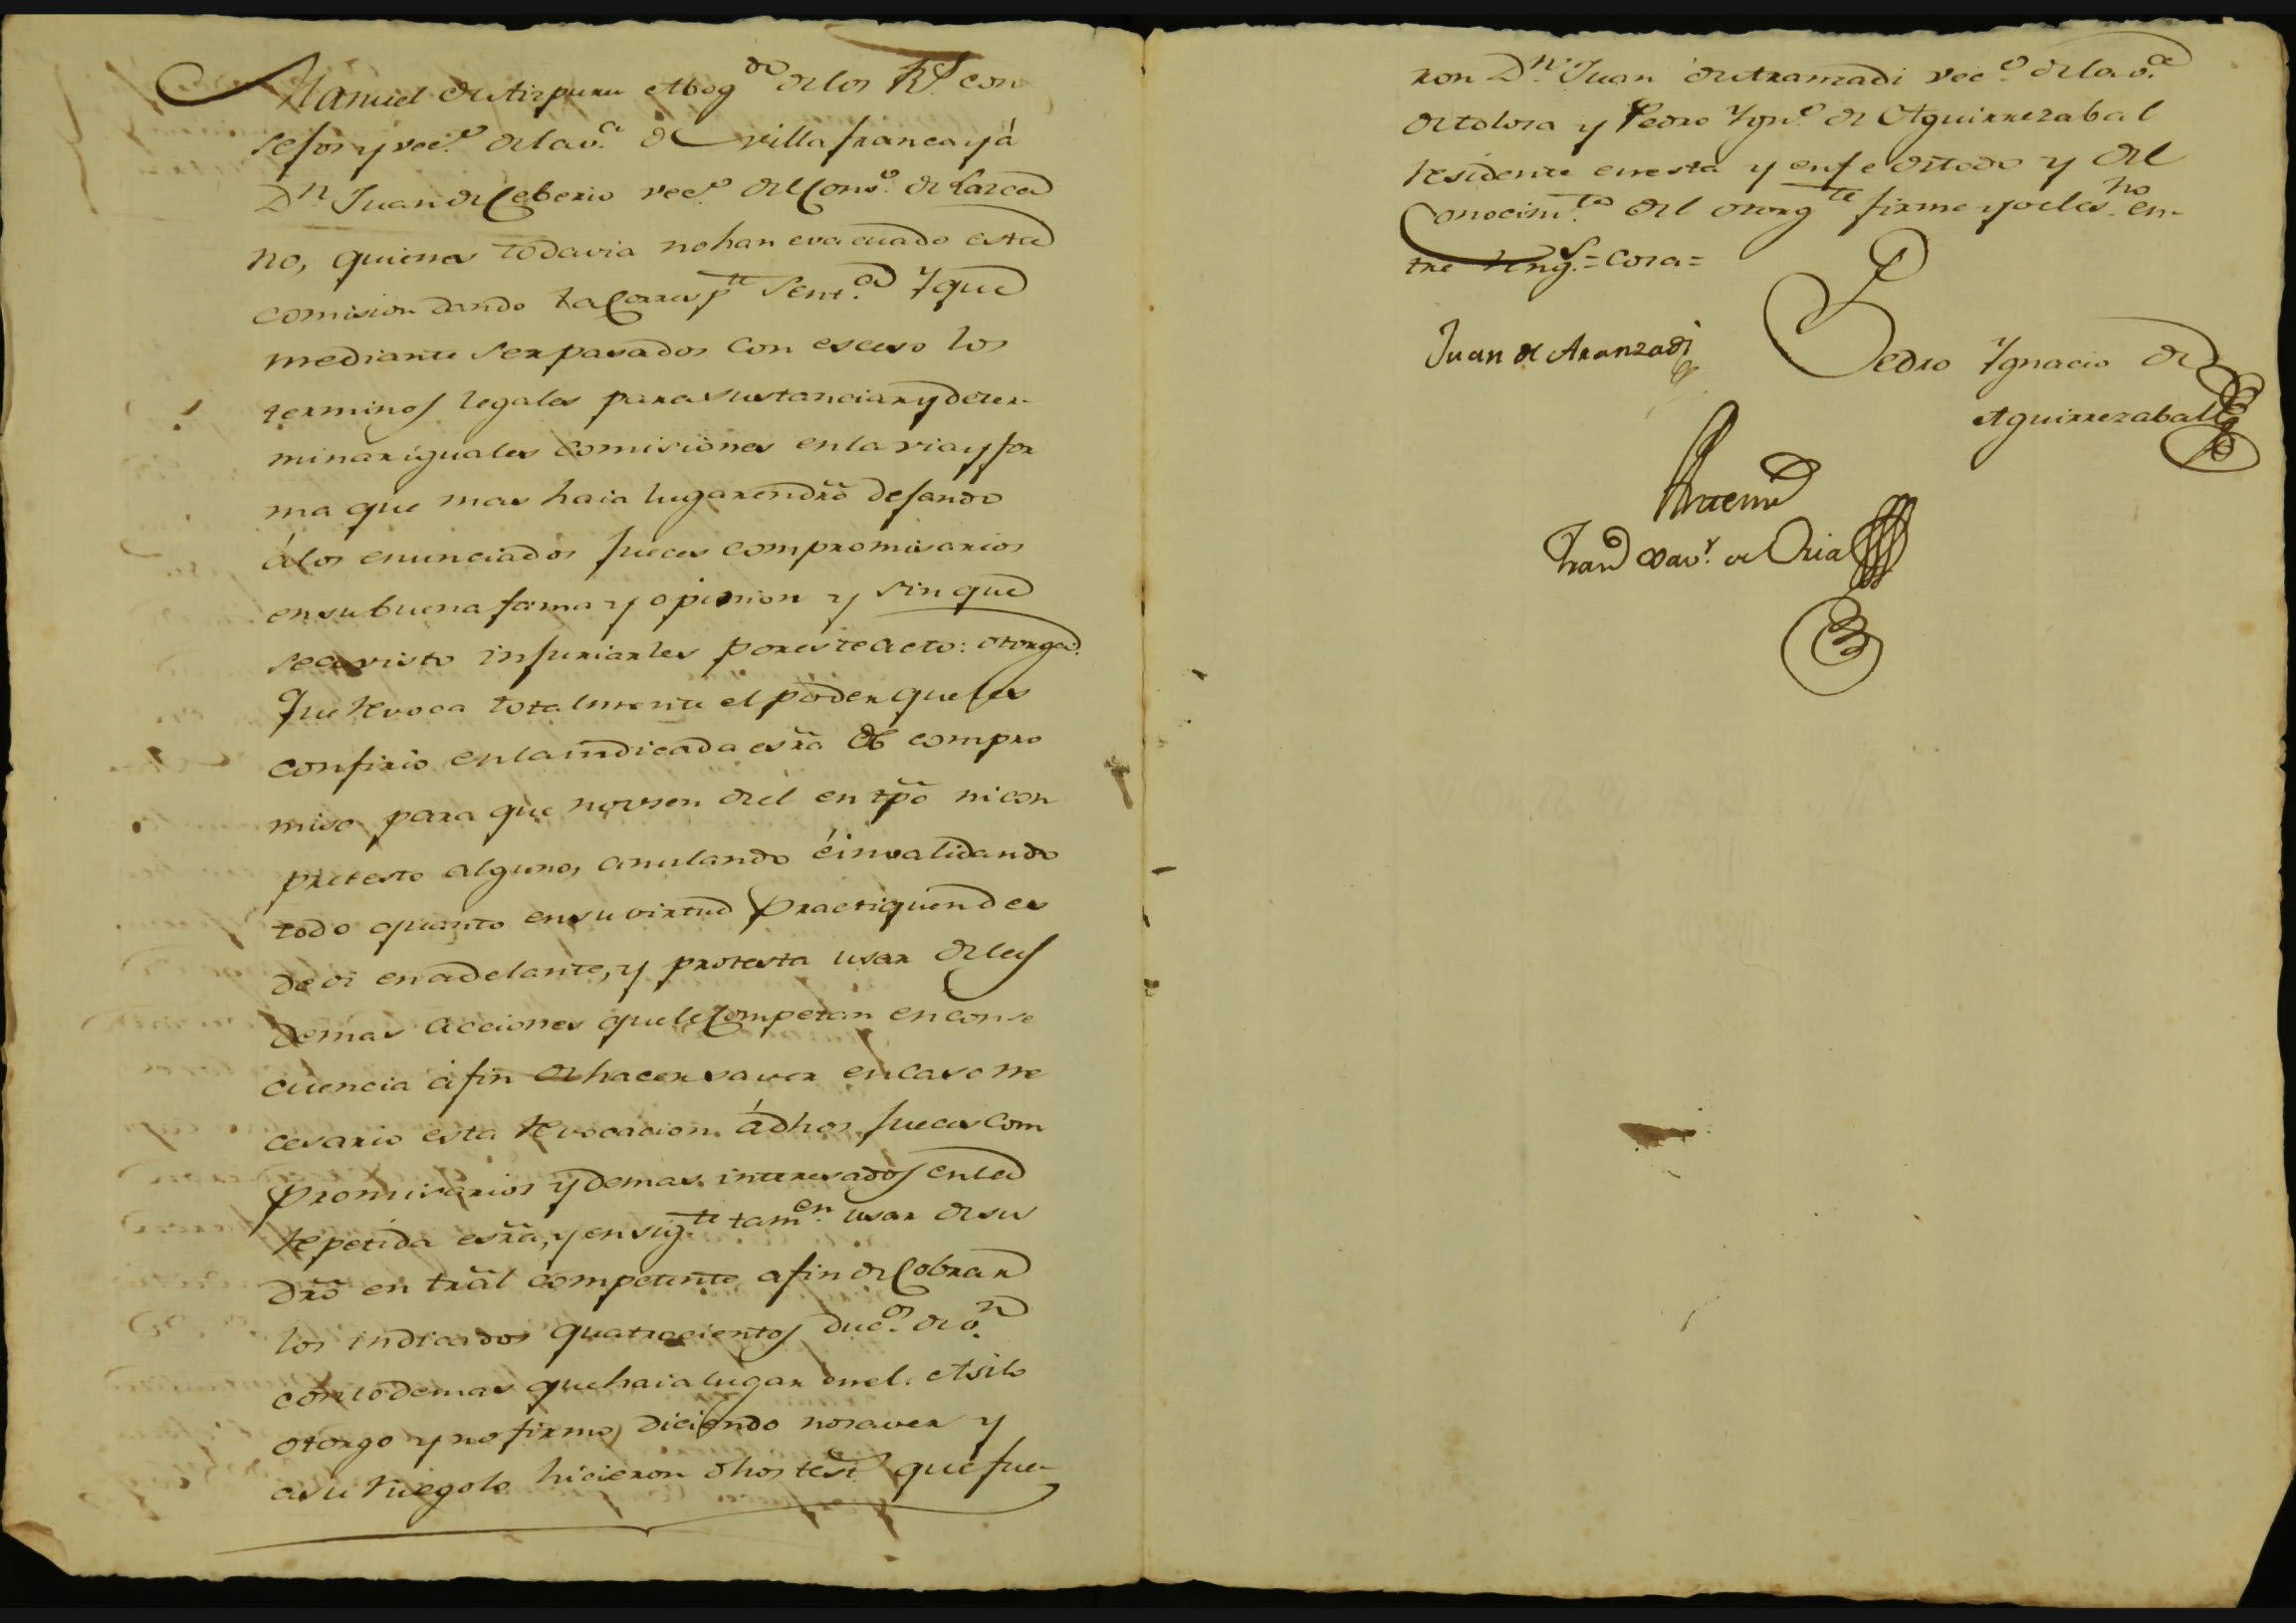 Manuel de Aizpuru Abog.do de los R.s Con
sejos y vec.o de la v.a de Villafranca y á
D.n Juan de Ceberio vec.o del Cons.o de Lazca
no, quienes todavia no han evacuado esta
comision dando la Corresp.te Sent.a Y que
mediante ser pasados con esceso los
terminos legales para sustanciar y deter-
minar iguales comisiones en la via y for
ma que mas haia lugar en dr̃o dejando
á los enunciados jueces compromisarios
en su buena fama y opinion y sin que
sea visto injuriarles por este acto: otorga:
Que revoca totalmente el poder que les
confirió en la indicada esr̃a de compro
miso para que no usen del en tp̃o ni con
pretesto alguno, anulando é invalidando
todo quanto en su virtud practiquen des
de oi en adelante, y protesta usar de las
demas acciones que le Competan en conse
cuencia á fin de hacer saver en caso ne
cesario esta revocacion á dhos jueces com
promisarios y demas interesados en la
repetida esr̃a, y en sig.te tam.en usar de su
dr̃o en tr̃al competente a fin de Cobrar
los indicados quatrocientos duc.os de v.n
con lo demas que haia lugar en el. Asi lo
otorgo y no firmo, diciendo no saver y
a su ruego lo hicieron dhos test.s que fue-
ron D.n Juan de Aranzadi vec.o de la v.a
de tolosa y Pedro Ygn.o de Aguirrezabal
residente en esta y en fe de todo y del
Conocim.to del otorg.te firme yo el es.no en-
tre reng.s = cosa =
Juan de Aranzadi
Pedro Ygnacio de
Aguirrezabal
Ante mi
Fran.co Xav.r de Oria